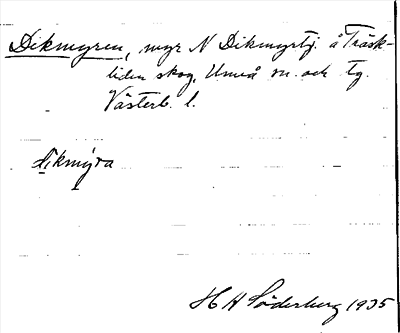 Dikmyren, myr N Dikmyrtj. å Träsk-
liden skog, Umeå sn. och tg.
Västerb. l.
dikmyra
H A Söderberg 1935